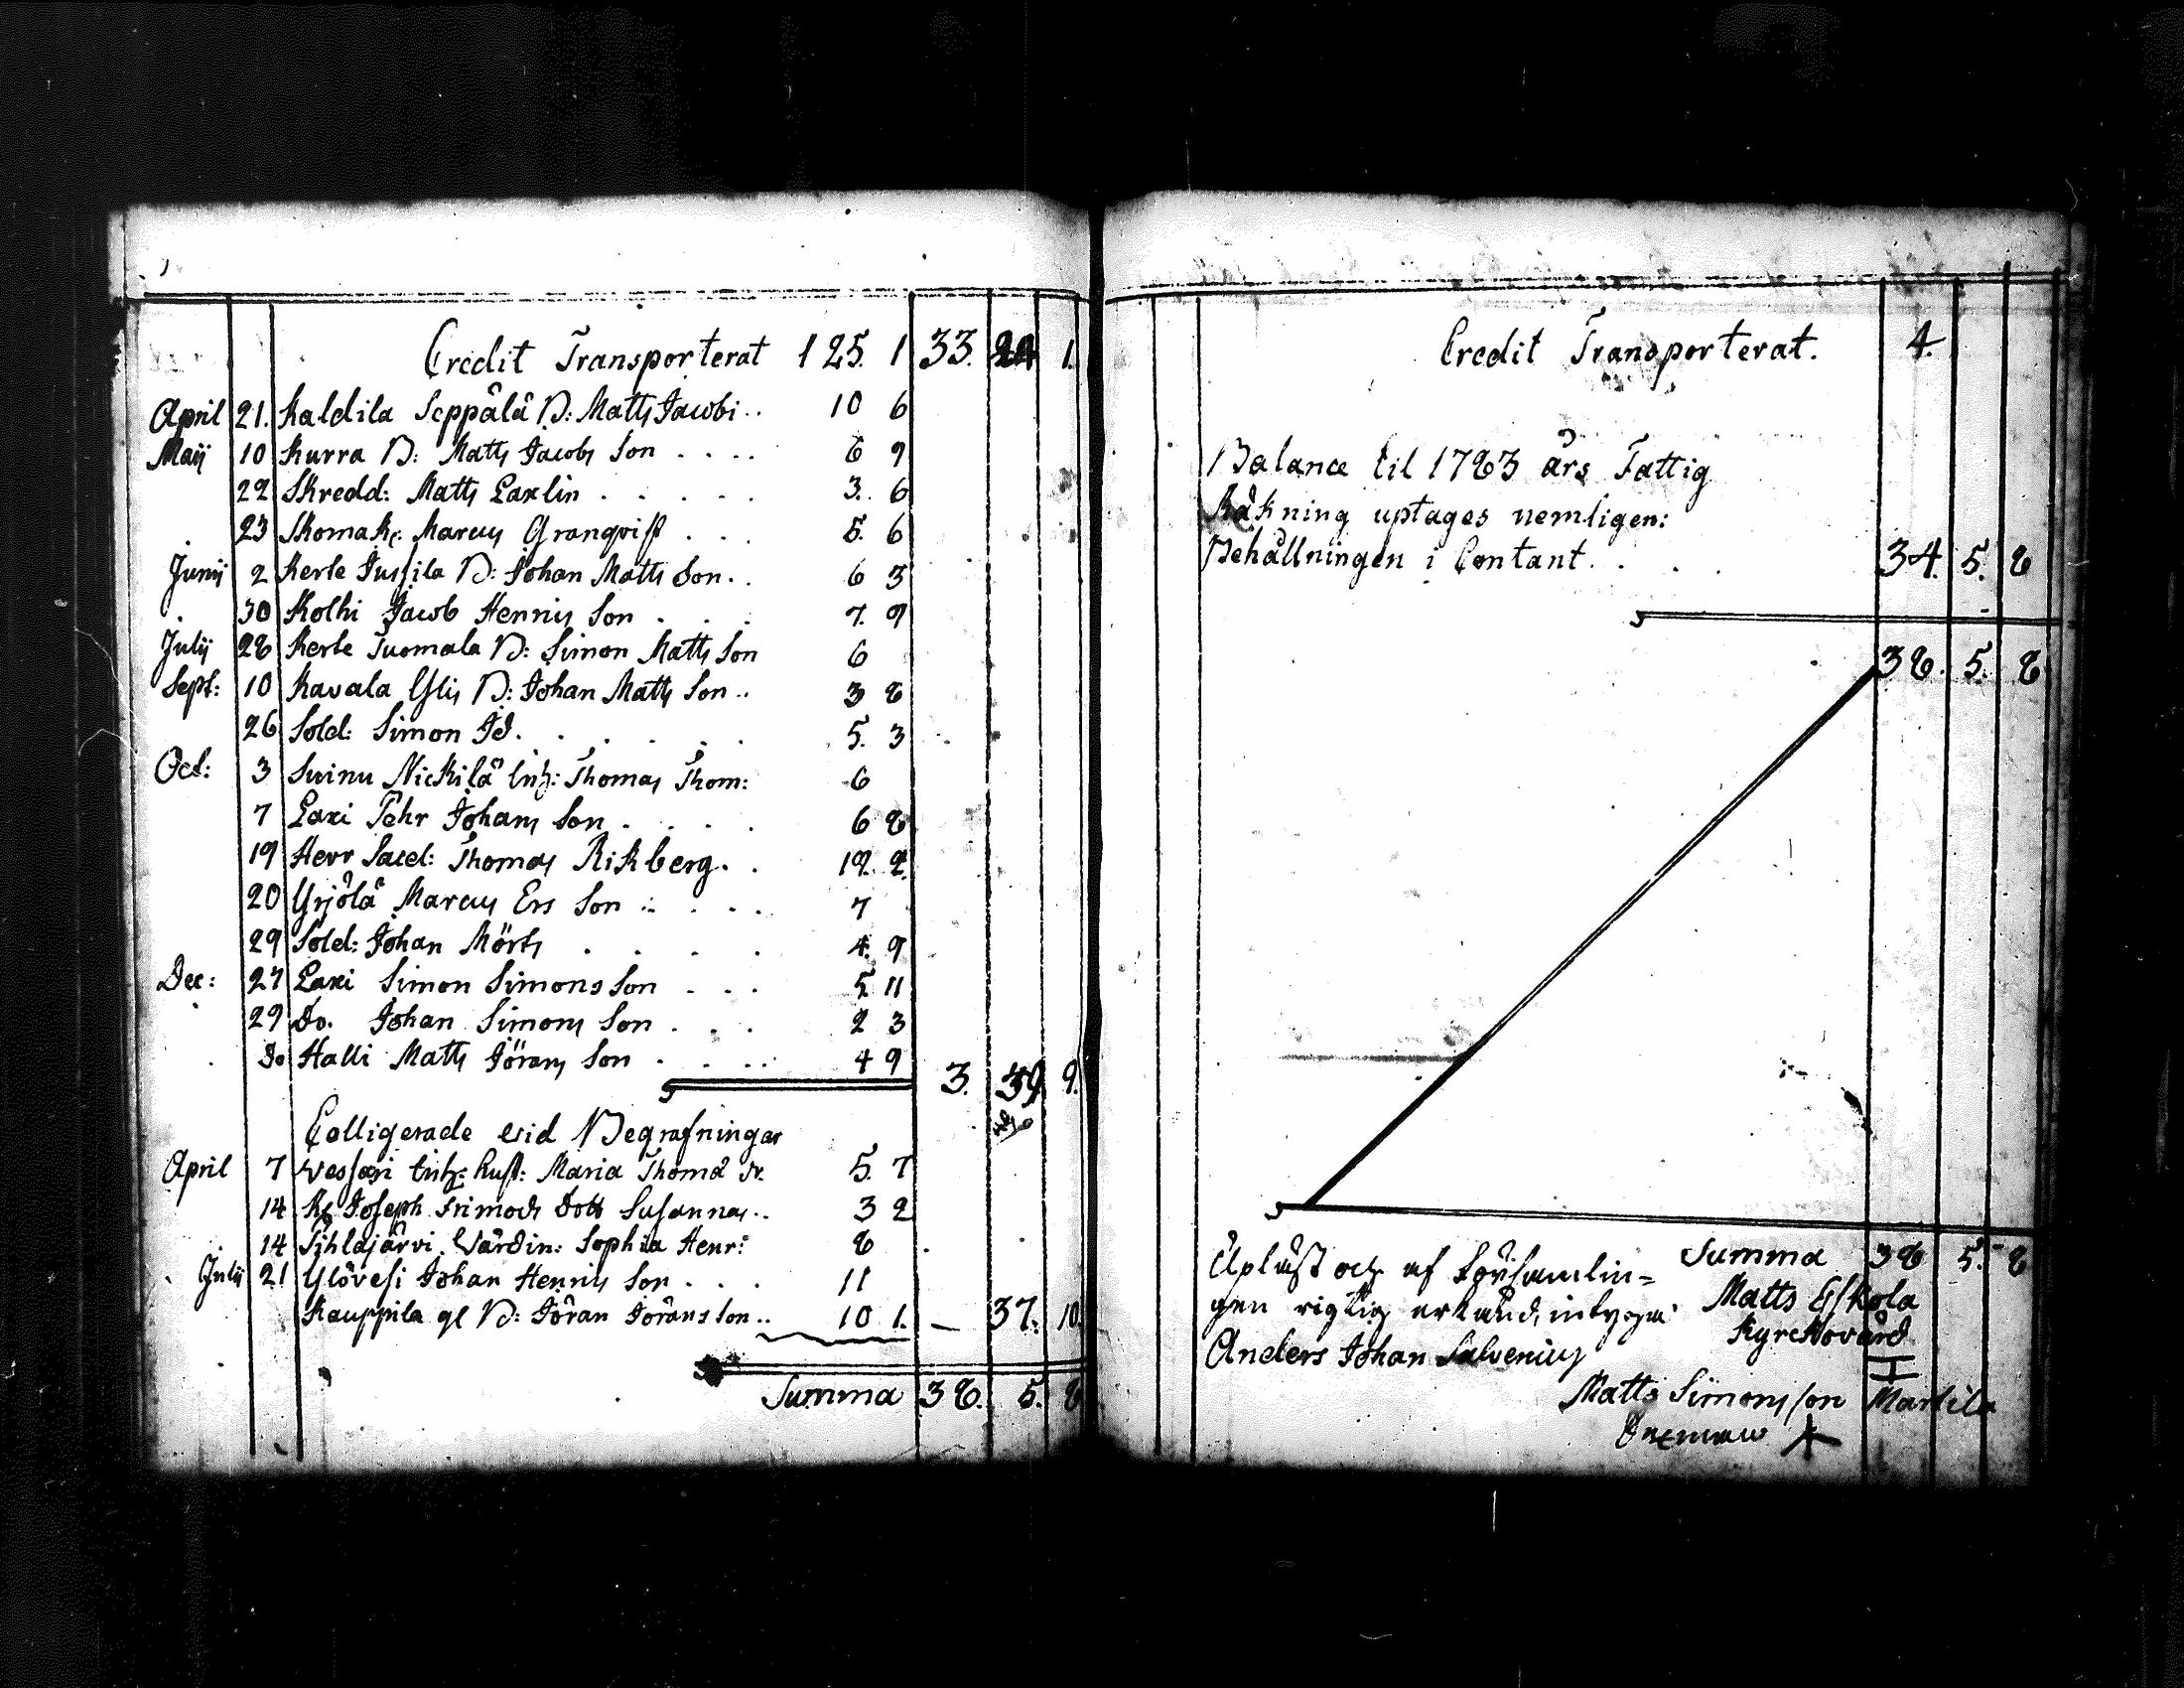 Credit Transporterat 125. 1 33. 24 1.
April 21. Kaldila Seppälä B: Matts Jacobi.. 10 6
Maij 10 Kurra B: Matts Jacobs Son .... 6 9
22 Skredd: Matts Laxlin ..... 3. 6
23 Skomak: Marcus Granqvist ... 5. 6
Junij 2 Kerle Jussila B: Johan Matts Son.. 6 3
30 Kolhi Jacob Henrics Son ... 7. 9
Julij 28 Kerle Tuomala B: Simon Matts Son 6
Sept: 10 Kavala Ylis B: Johan Matts Son.. 3 8
26 Sold: Simon Id. ..... 5. 3
Oct: 3 Suinu Nickilä Inh: Thomas Thom: 6
7 Laxi Pehr Johans Son .... 6 8
19 Herr Sacel: Thomas Rikberg. . 12. 2.
20 Yrjölä Marcus Ers Son .... 7
29 Sold: Johan Mört ..... 4. 9
Dec: 27 Laxi Simon Simons Son ... 5 11
29 Do. Johan Simons Son ... 2 3
Do Halli Matts Jörans Son .... 4 9
3. 39 9.
Colligerade vid Begrafningar
April 7 Vessari Inh: Hust: Maria Thoma Dr. 5. 7
14 Joseph Dott Susannas.. 3 2
14 Pihlajärvi Värdin: Sophia Henr: 8
Julij 21 Ylövesi Johan Henrics Son ... 11
Kauppila gl B: Jöran Jörans Son.. 10 1. — 37. 10.
Summa 38. 5. 8
Credit Transporterat. 4.
Balance til 1783 års Fattig
Räkning uptages nemligen:
Behållningen i Contant.... 34. 5. 8
38. 5. 8
Summa 38 5. 8
Upläst och af Församlin=
gen rigtig erkänd, intyga
Matts Eskola
Kyrckovärd
Anders Johan Salvenius
Matts Simonsson Martila
Sexman